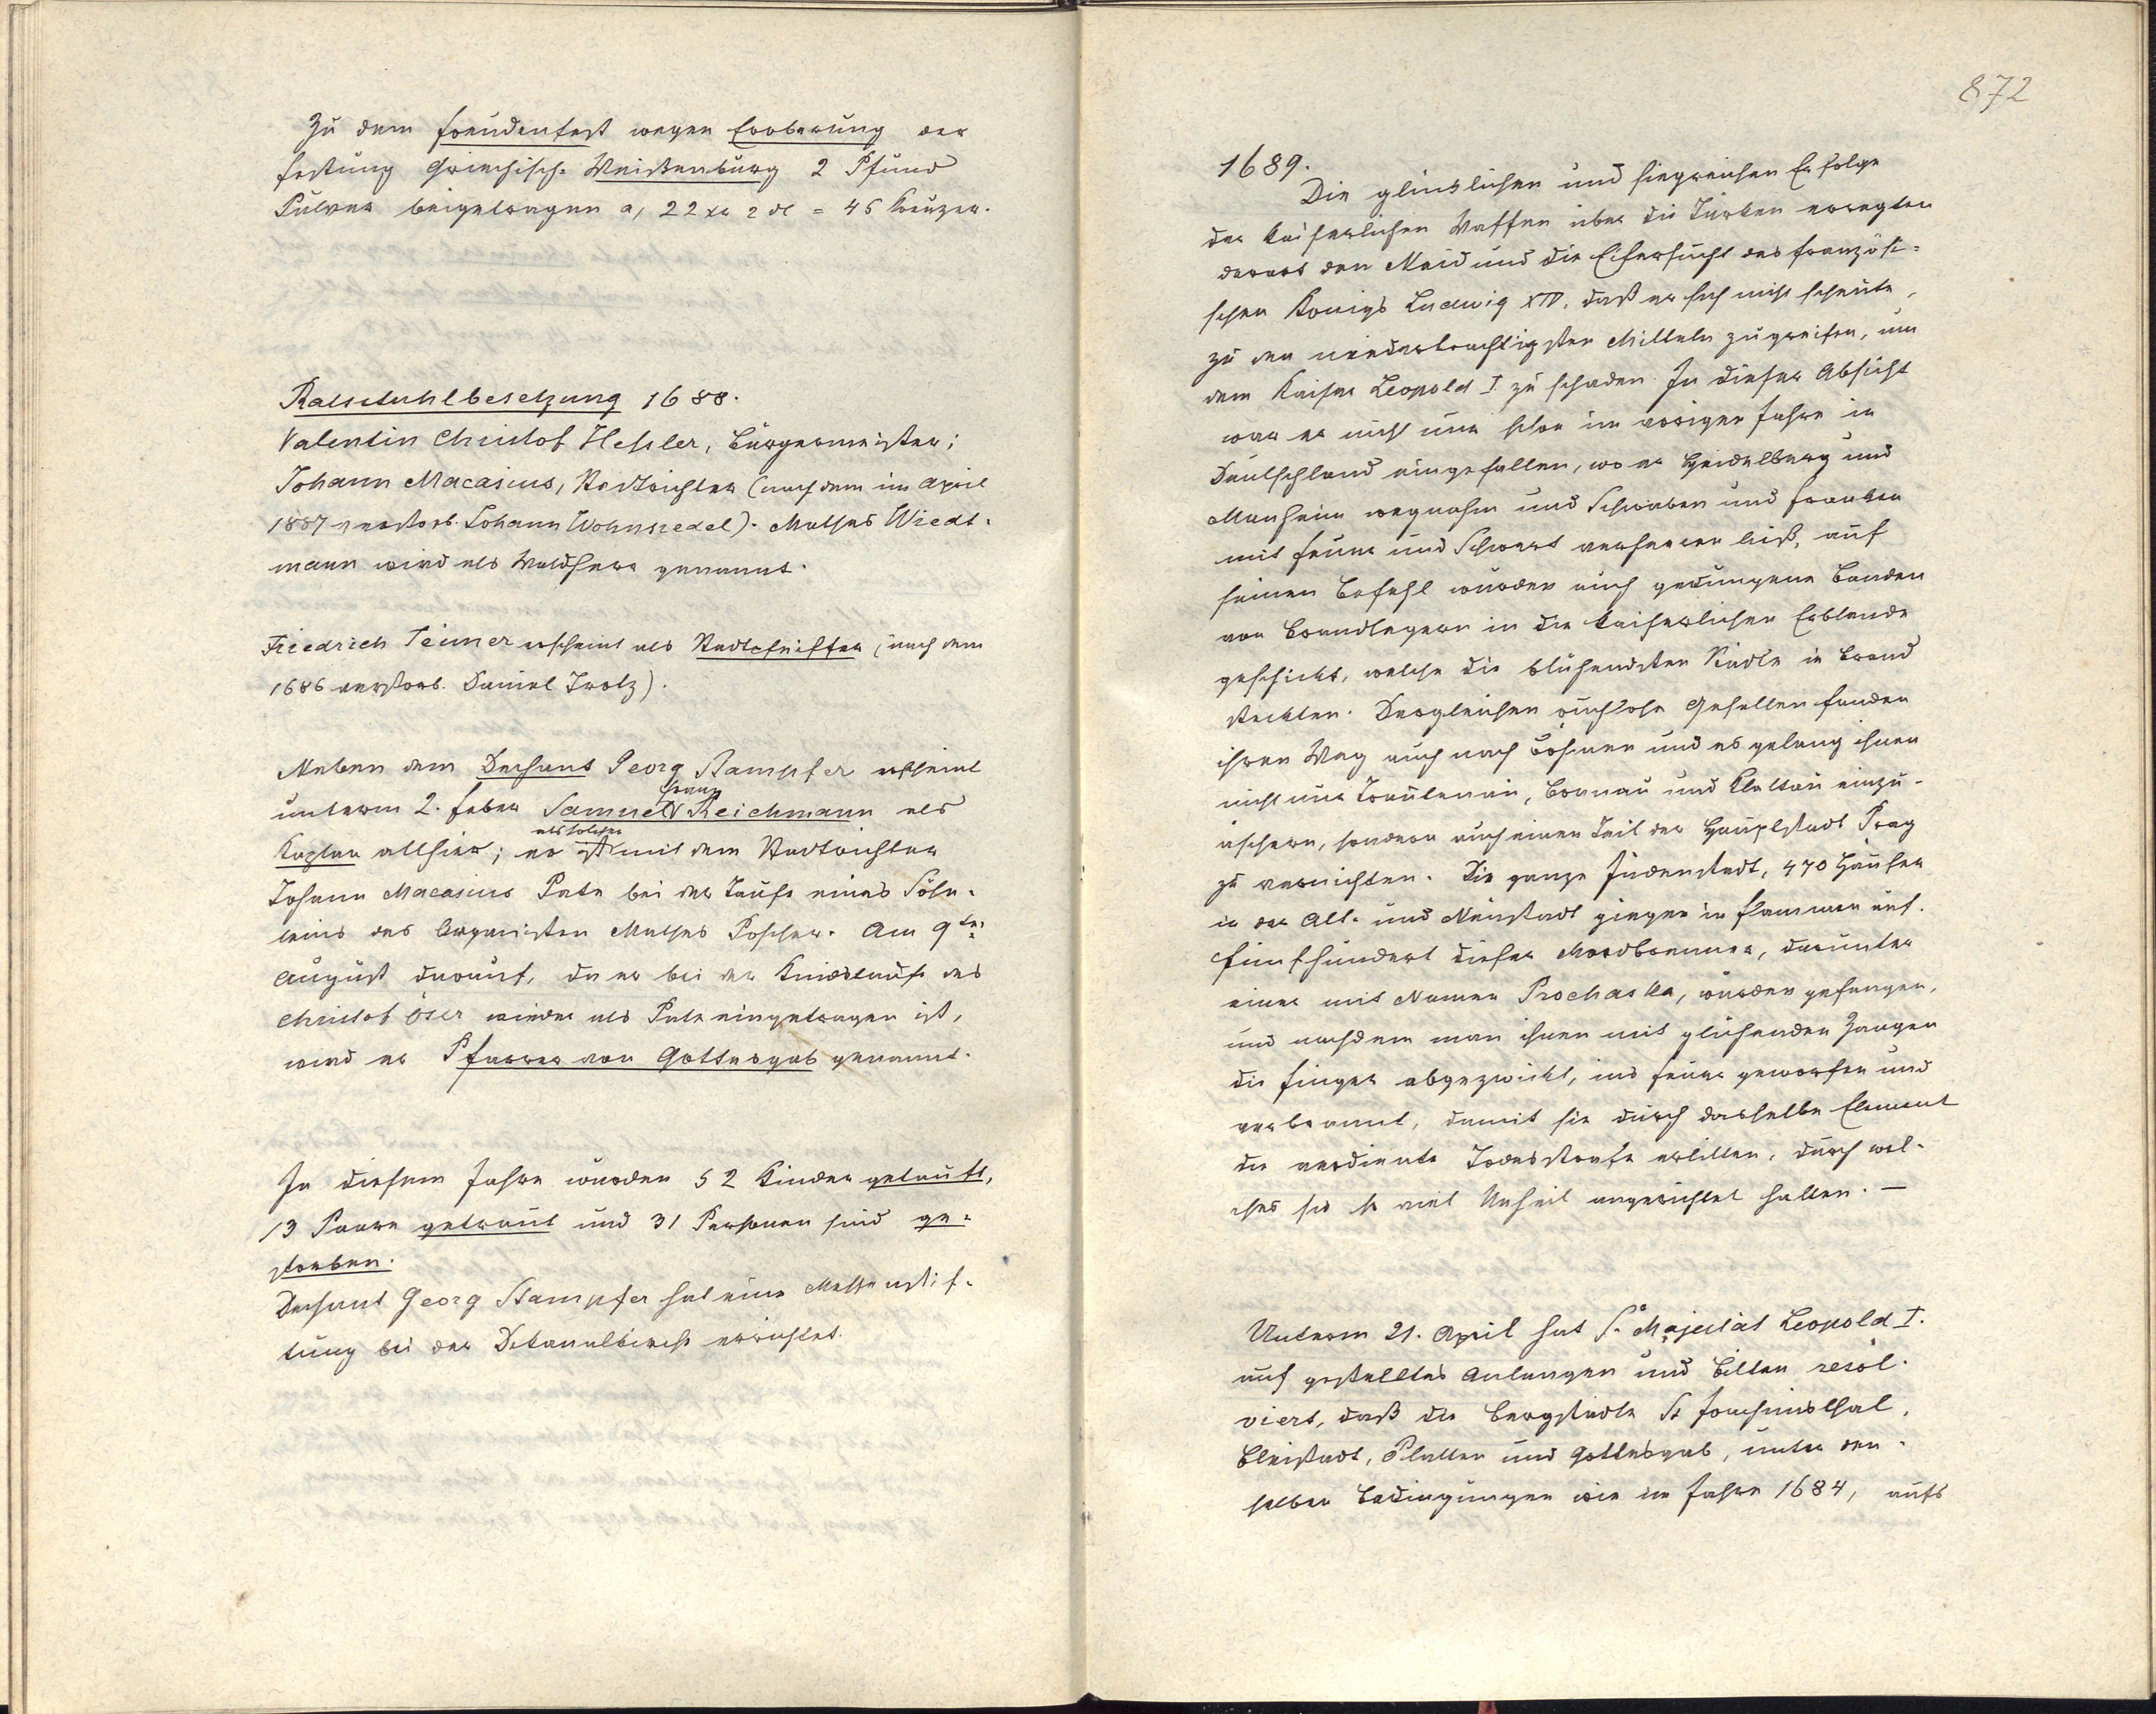 Zu dem Freudenfest wegen Eroberung der
Festung Griechisch-Weißenburg 2 Pfund
Pulver beigetragen a, 22 xr 2 ₰ = 45 Kreuzer.
Ratsstuhlbesetzung 1688.
Valentin Christof Heßler, Bürgermeister;
Johann Macasius, Stadtrichter (nach dem im April
1687 verstorb. Johann Wohnsiedel). Mathes Wiedt-
mann wird als Waldherr genannt.
Friedrich Teimer erscheint als Stadtschreiber (nach dem
1686 verstorb. Daniel Trotz).
Neben dem Dechant Georg Stampfer erscheint
unterm 2. Feber Samuel Franz Reichmann als
Kaplan allhier; er ist als solcher mit dem Stadtrichter
Johann Macasius Pate bei der Taufe eines Söhn-
leins des Organisten Mathes Poscher. Am 9ten
August darauf, da er bei der Kindstaufe des
Christof Öser wieder als Pate eingetragen ist,
wird er Pfarrer von Gottesgab genannt.
In diesem Jahre wurden 52 Kinder getauft,
13 Paare getraut und 31 Personen sind ge-
storben.
Dechant Georg Stampfer hat eine Messenstif-
tung bei der Dekanalkirche errichtet.
872
1689.
Die glücklichen und siegreichen Erfolge
der kaiserlichen Waffen über die Türken erregten
derart den Neid und die Eifersucht des französi-
schen Königs Ludwig XIV. daß er sich nicht scheute,
zu den niederträchtigsten Mitteln zu greifen, um
dem Kaiser Leopold I zu schaden. In dieser Absicht
war er nicht nur schon im vorigen Jahre in
Deutschland eingefallen, wo er Heidelberg und
Manheim wegnahm und Schwaben und Franken
mit Feuer und Schwert verheeren ließ, auf
seinen Befehl wurden auch gedungene Banden
von Brandlegern in die kaiserlichen Erblande
geschickt, welche die blühendsten Städte in Brand
steckten. Dergleichen ruchlose Gesellen fanden
ihren Weg auch nach Böhmen und es gelang ihnen
nicht nur Trautenau, Braunau und Klattau einzu-
äschern, sondern auch einen Teil der Hauptstadt Prag
zu vernichten. Die ganze Judenstadt, 470 Häuser
in der Alt- und Neustadt gingen in Flammen auf.
Fünfhundert dieser Mordbrenner, darunter
einer mit Namen Prochaska, wurden gefangen,
und nachdem man ihnen mit glühenden Zangen
die Finger abgezwickt, ins Feuer geworfen und
verbrannt, damit sie durch dasselbe Element
die verdiente Todesstrafe erlitten, durch wel-
ches sie so viel Unheil angerichtet hatten. —
Unterm 21. April hat Se Majestät Leopold I.
auf gestelltes Anlangen und Bitten resol-
viert, daß die Bergstädte St Joachimsthal,
Bleistadt, Platten und Gottesgab, unter den-
selben Bedingungen wie im Jahre 1684, aufs